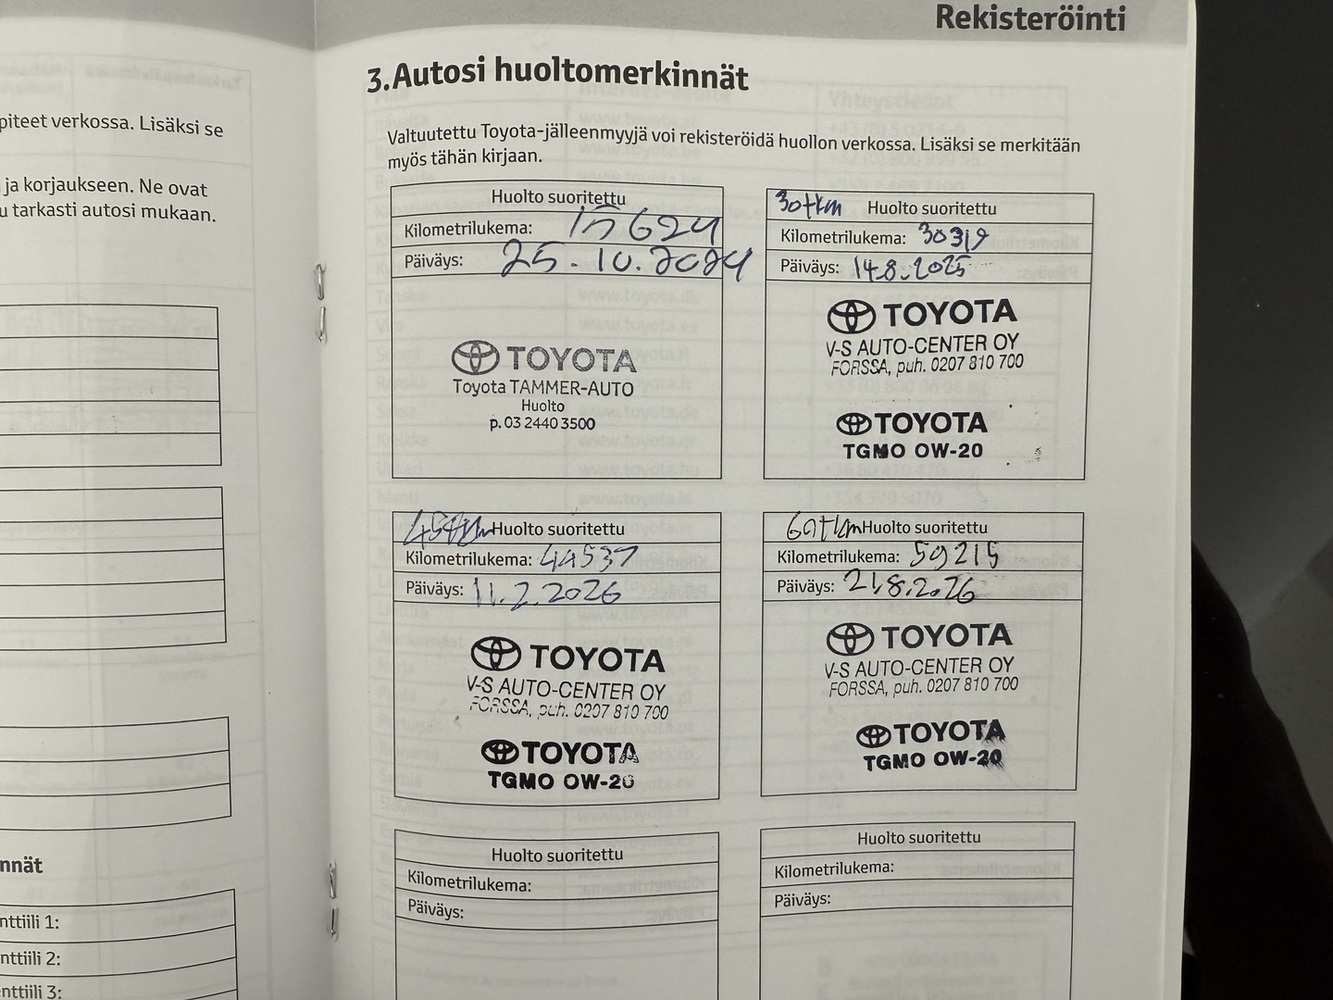 Rekisteröinti
piteet verkossa. Lisäksi se
ja korjaukseen. Ne ovat
u tarkasti autosi mukaan.
nnät
nttiili 1:
nttiili 2:
nttiili 3:
3.Autosi huoltomerkinnät
Valtuutettu Toyota-jälleenmyyjä voi rekisteröidä huollon verkossa. Lisäksi se merkitään
myös tähän kirjaan.
Huolto suoritettu
Kilometrilukema: 15624
Päiväys: 25.10.2024
TOYOTA
Toyota TAMMER-AUTO
Huolto
p. 03 2440 3500
30tkm Huolto suoritettu
Kilometrilukema: 30319
Päiväys: 14.8.2025
TOYOTA
V-S AUTO-CENTER OY
FORSSA, puh. 0207 810 700
TOYOTA
TGMO 0W-20
45tkm Huolto suoritettu
Kilometrilukema: 44537
Päiväys: 11.2.2026
TOYOTA
V-S AUTO-CENTER OY
FORSSA, puh. 0207 810 700
TOYOTA
TGMO 0W-20
60tkm Huolto suoritettu
Kilometrilukema: 59215
Päiväys: 21.8.2026
TOYOTA
V-S AUTO-CENTER OY
FORSSA, puh. 0207 810 700
TOYOTA
TGMO 0W-20
Huolto suoritettu
Kilometrilukema:
Päiväys:
Huolto suoritettu
Kilometrilukema:
Päiväys: